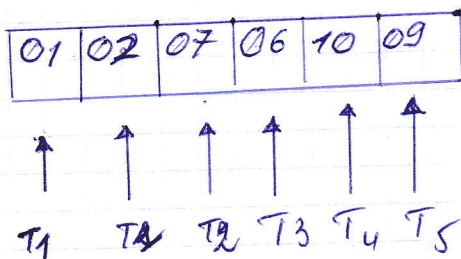 01 02 07 06 10 09
T1 T2 T3 T4 T5